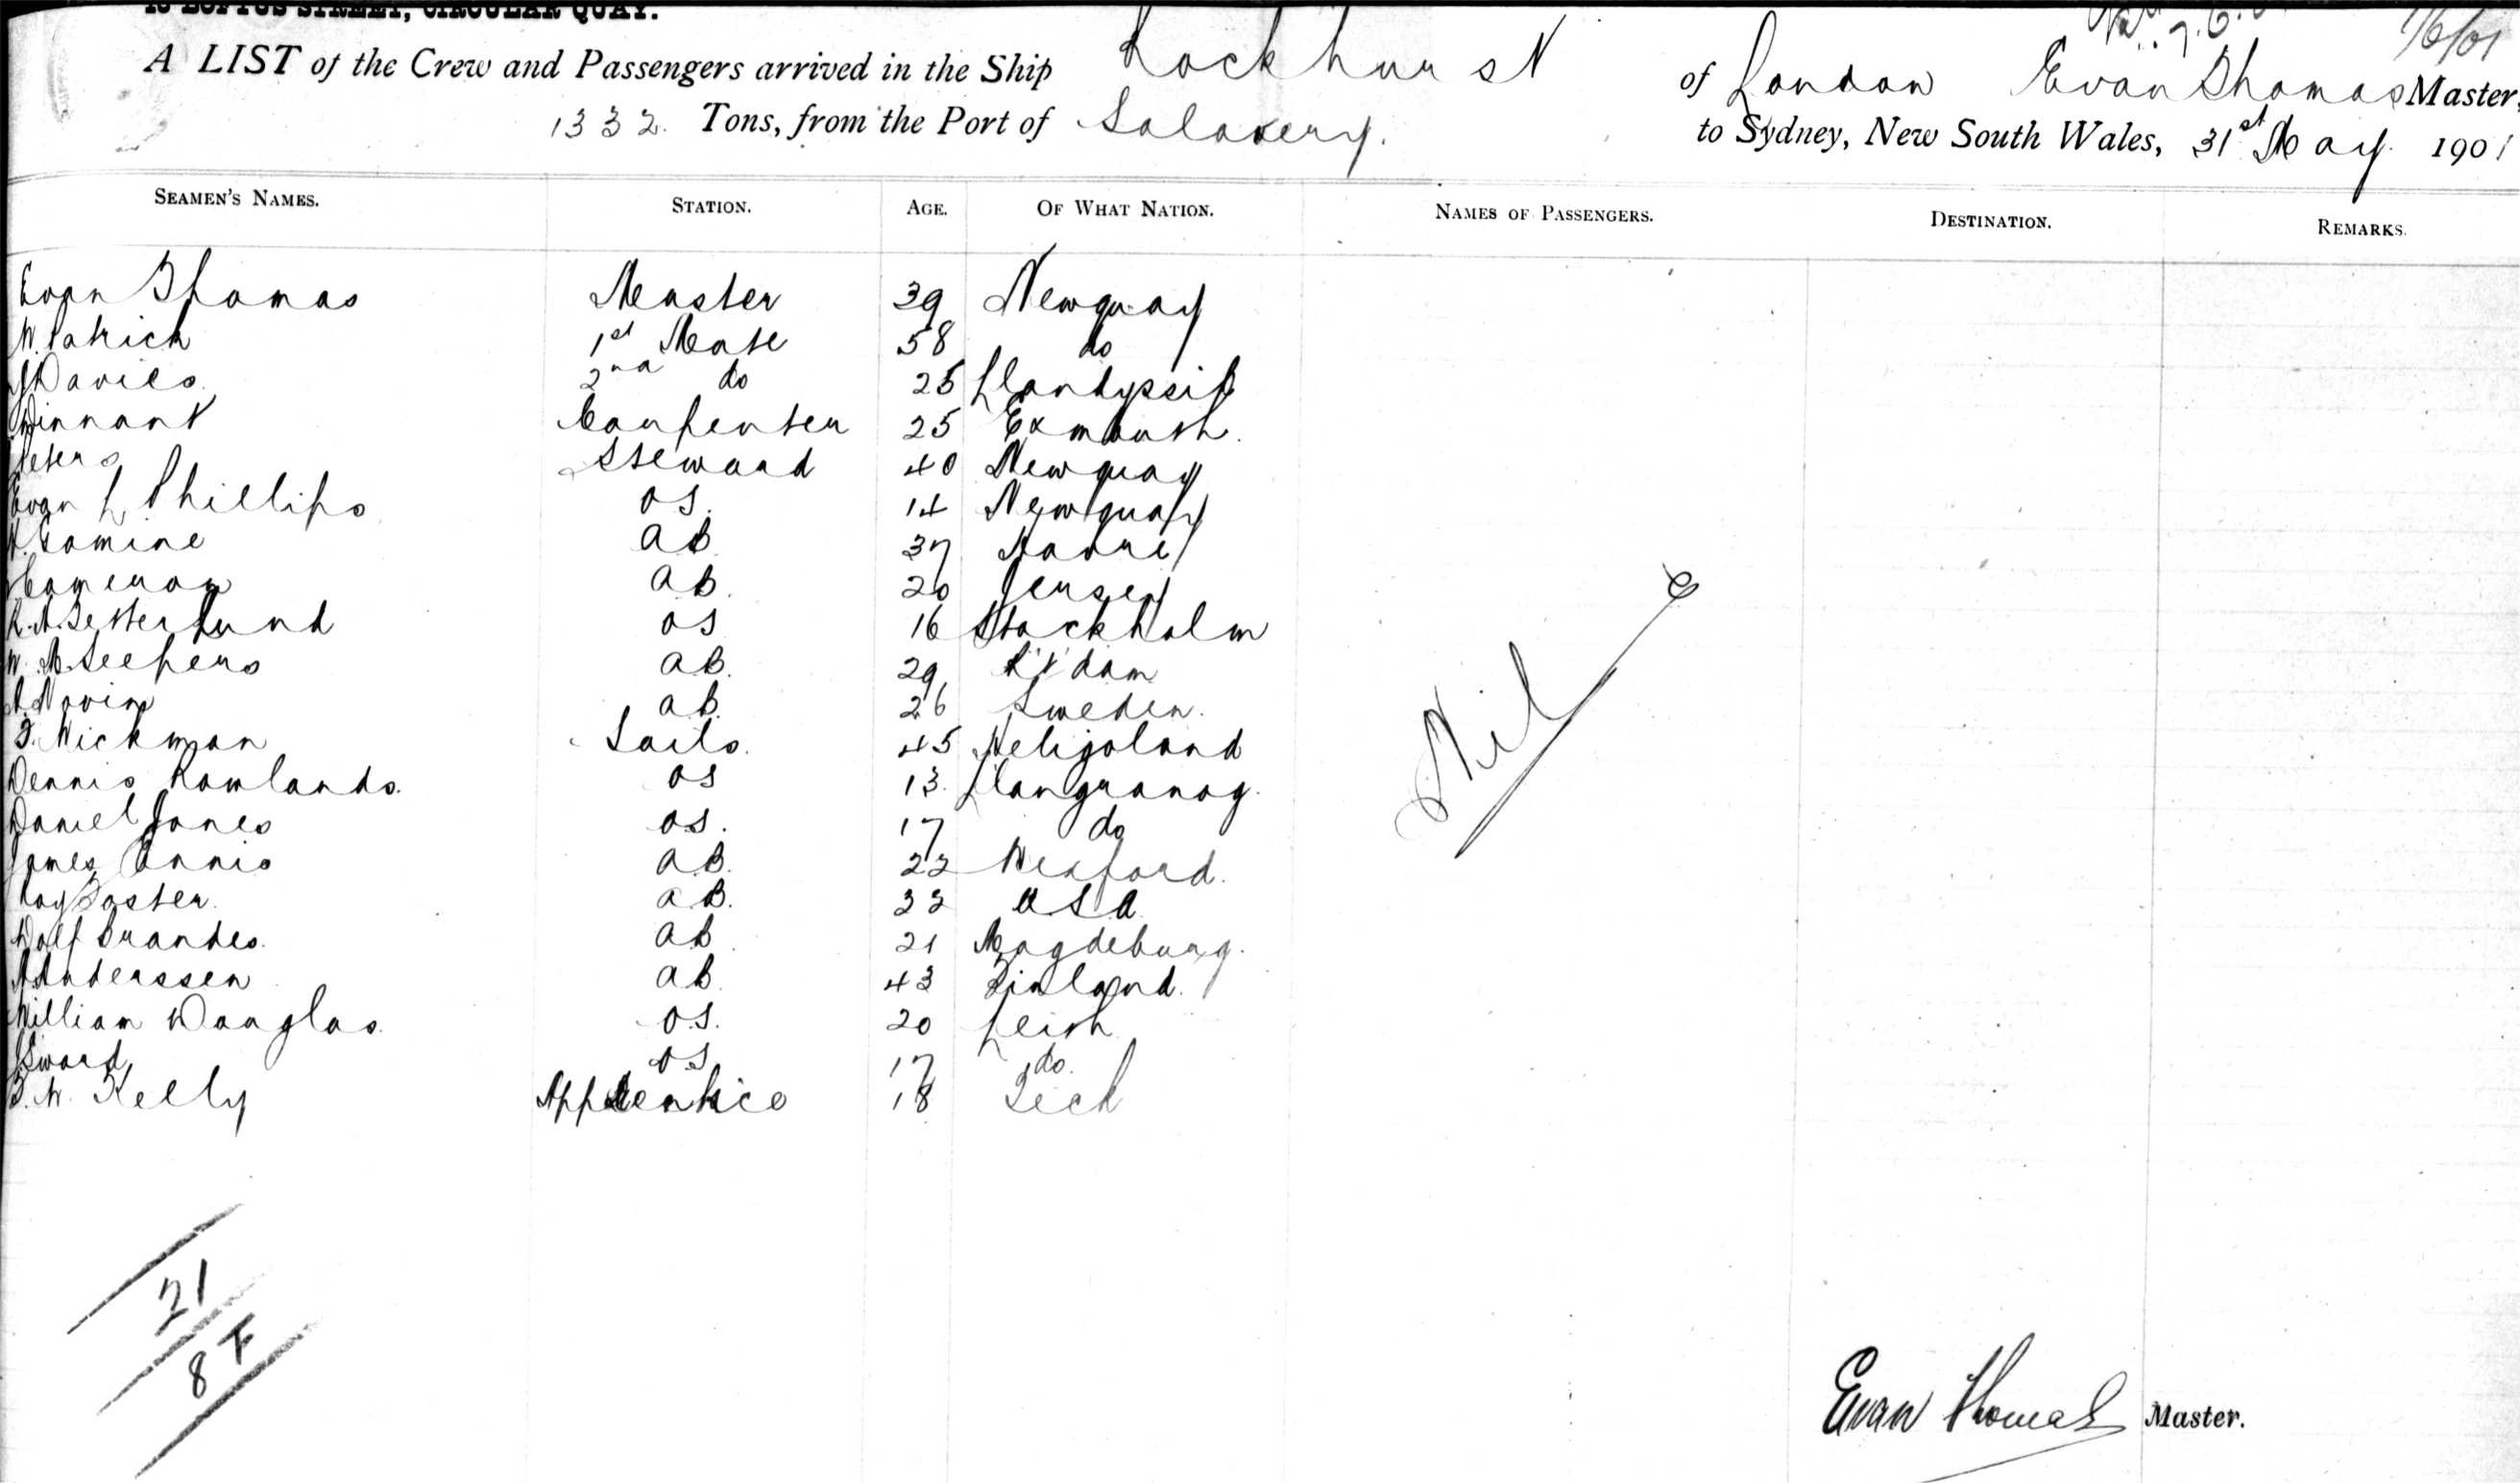 18 LOFTUS STREET, CIRCULAR QUAY.
A LIST of the Crew and Passengers arrived in the Ship Lockhurst of London Evan Thomas Master,
1332 Tons, from the Port of Salavery. to Sydney, New South Wales, 31st May 1901
SEAMEN'S NAMES. STATION. AGE. OF WHAT NATION. NAMES OF PASSENGERS. DESTINATION. REMARKS.
Evan Thomas Master 39 Newquay
W. Patrick 1st Mate 58 do
J Davies 2nd do 25 Llandyssil
Dinnant Carpenter 25 Exmouth.
Peters Steward 40 Newquay
Evan L Phillips OS. 14 Newquay
AB 37
Cameron AB. 20 Jersey
Lund OS 16 Stockholm
W. AB. 29 R'dam
AB. 26 Sweden.
Wickman Sails. 45 Heligoland
Dennis Rowlands. OS 13. Llangranog.
Daniel Jones OS. 17 do
James Ennis AB. 22 Wexford.
Roy Foster. AB. 22 USA
Brandes. AB. 21 Magdeburg.
Anderssen AB. 43 Finland.
William Douglas. O.S. 20 Leith
Sward OS 17 do.
W. Kelly Apprentice 18
Nil
21
8 F
Evan Thomas Master.